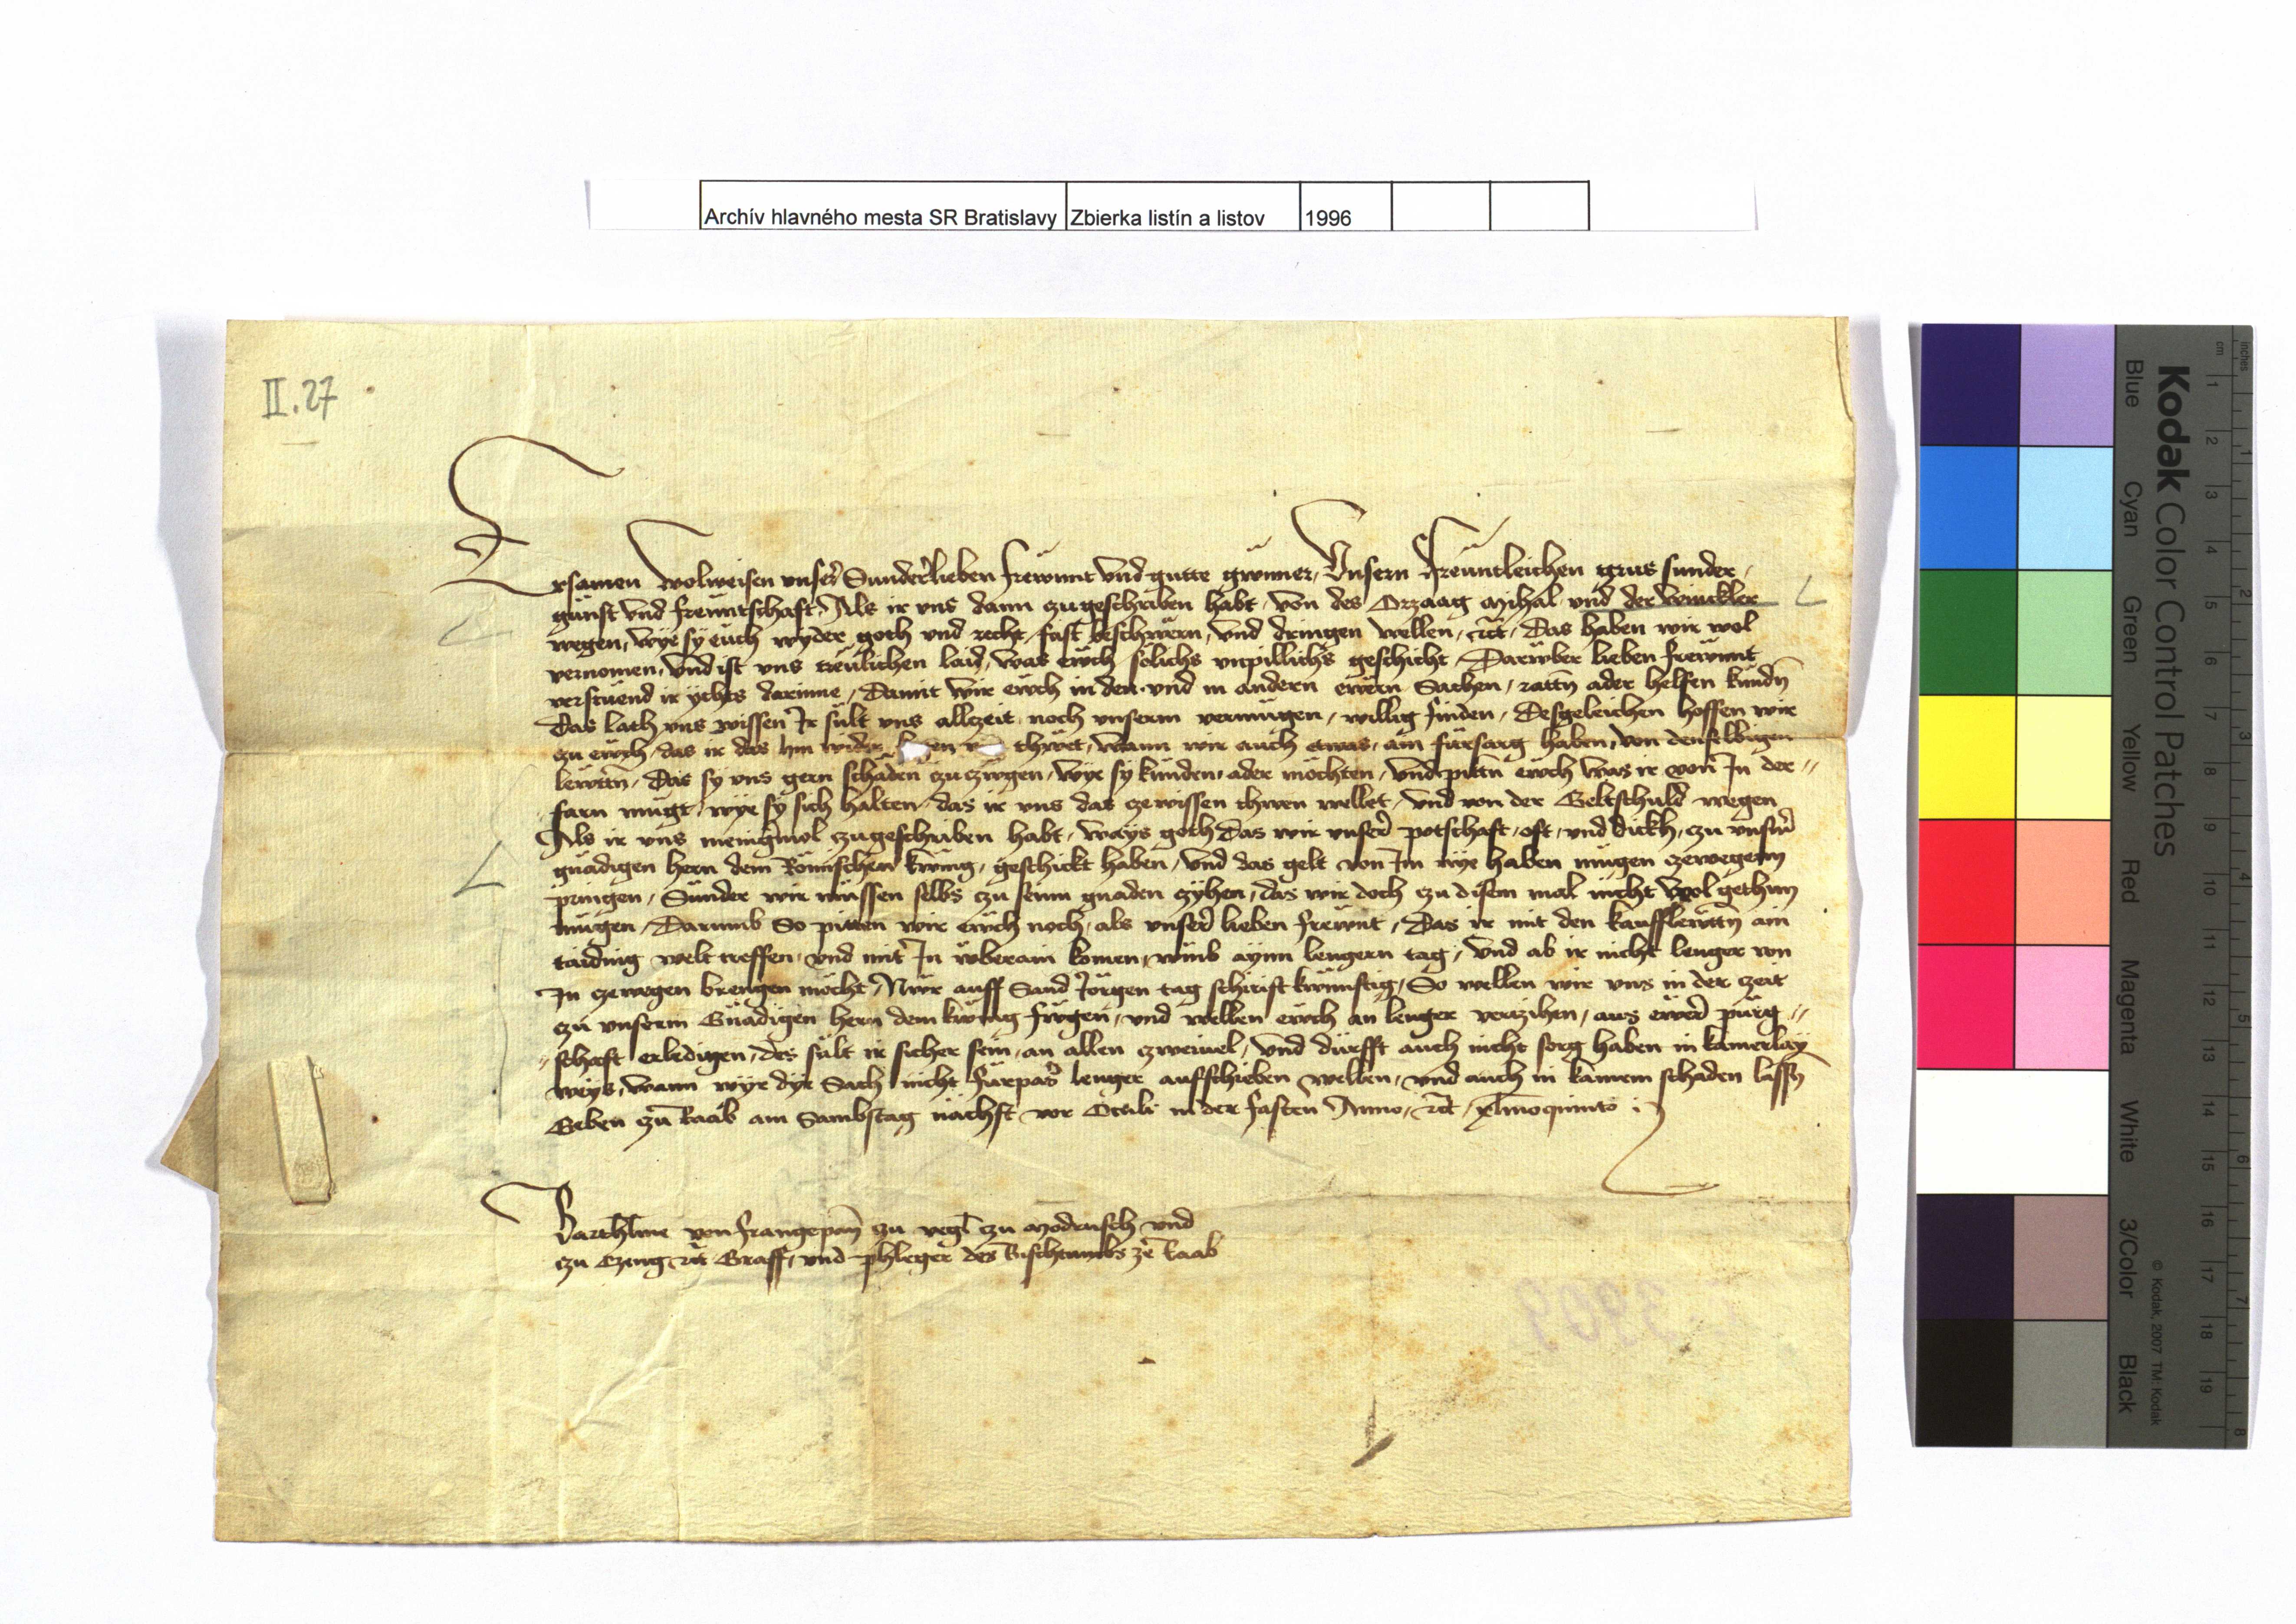 Archív hlavného mesta SR Bratislavy Zbierka listín a listov 1996
II. 27
Ersamen Wolweisen unser Sunderlieben frewnt und gutte günner, Unsern Freuntleichen grus sunder
gunst und freuntschaft Als ir uns dann zugeschriben habt von des Orzaag Mihal und der Winckler
wegen, wye sy euch wyder goth und recht fast beschwern, und dringen wellen, Das haben wir wol
vernomen, und ist uns treulichen laid, was ewch solichs unpillichs geschicht, Daruber lieben frewnt
verstuend ir ychts darinne, Damit wir ewch in den und in andern ewern Sachen, ratten ader helfen kunden
Das lath uns wissen Ir sult uns allzeit noch unserm vermugen, willig finden, Desgeleichen hoffen wir
zu ewch, das ir das hin wider thwet, wann wir auch etwas, am fursarg haben, von denselbigen
lewten, Das sy uns gern schaden zu zwgen, wye sy kunden ader mochten, und pitten ewch was ir von In der
farn mugt, wye sy sich halten, das ir uns das ze wissen thwen wellet, und von der Geltschuld wegen
Als ir uns menigmol zugeschriben habt, ways goth das wir unser potschaft, oft, und dickh, zu unserm
gnadigen hern dem Romischen kunig, geschickt haben, und das gelt von Im nye haben mugen zewegenn
pringen, Sunder wir mussen selbs zu seinn gnaden zyhen, das wir doch zu disem mal nicht wol gethun
mugen, Darumb So pitten wir ewch noch, als unser lieben frewnt, Das ir mit den kaufflewten ain
taiding welt treffen, und mit In uberain komen, umb aynn lengern tag, und ab ir nicht lenger von
In zewegen brengen mocht, Nur auff Sand Jorgen tag schirist kunftig, So wellen wir uns in der zeit
zu unserm Gnadigen hern dem kunig fugen, und wellen ewch an lenger verzihen, aus ewer purg
schaft erledigen, des sult ir sicher sein, an allen zweivel, und durfft auch nicht sorg haben in kainerlay
weys, wann wyr dye Sach nicht furpas lenger aufschieben wellen, und auch in kainem schaden lassen
Geben zu Raab am Sambstag nachst vor Oculi in der fasten Anno, xlmoquinto
Barthlme von Frangepan zu Vegl zu Modrusch und
zu Czeng Graff, und phleger des Bischtumbs ze Raab
Kodak Color Control Patches
Blue Cyan Green Yellow Red Magenta White 3/Color Black
inches 1 2 3 4 5 6 7 8
cm 1 2 3 4 5 6 7 8 9 10 11 12 13 14 15 16 17 18 19
© Kodak, 2007 TM: Kodak